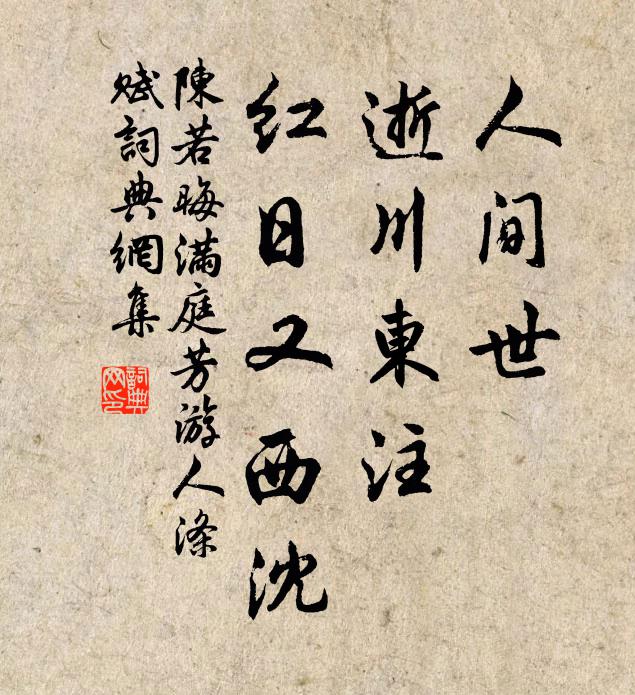 人间世
逝川東注
红日又西沈
陳若晦满庭芳游人滌
赋詞典網集
詞典网印